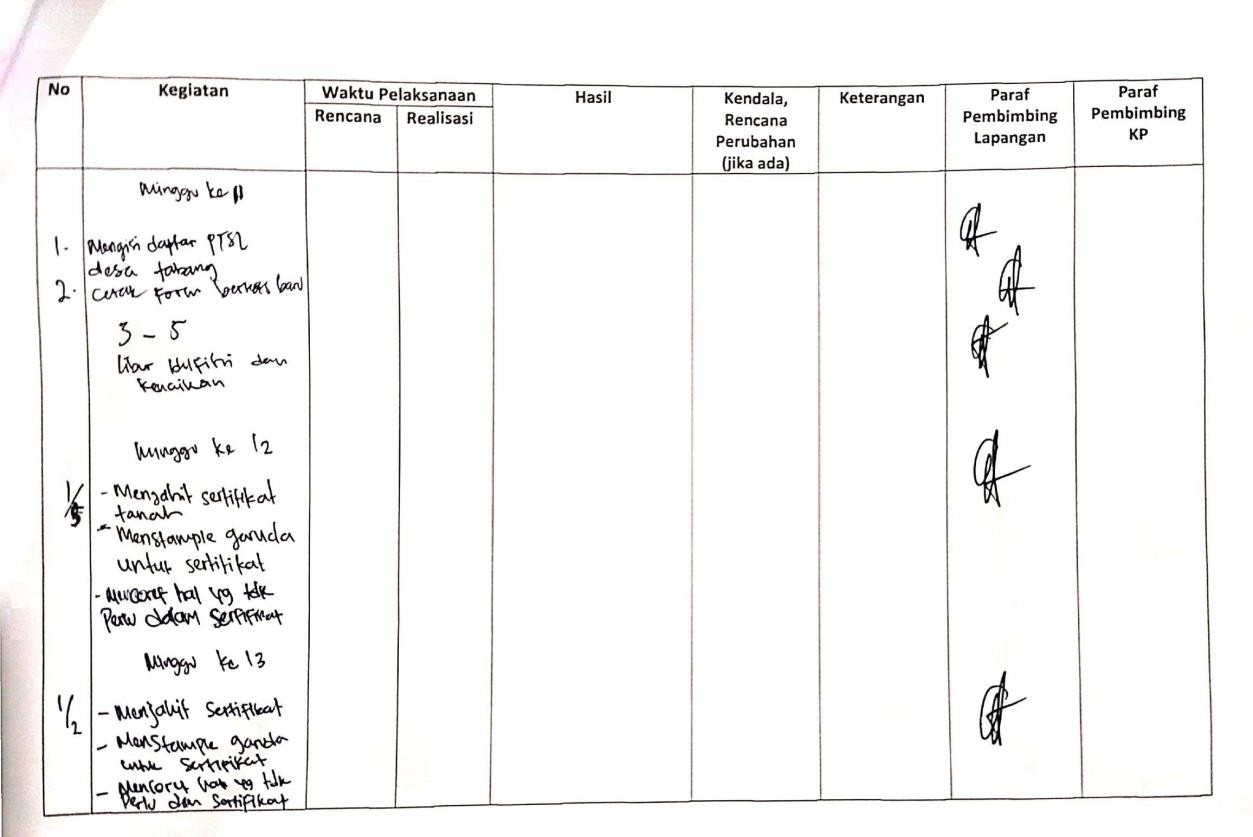 No Kegiatan Waktu Pelaksanaan Hasil Kendala, Keterangan Paraf Paraf
Rencana Realisasi Rencana Pembimbing Pembimbing
Perubahan Lapangan KP
(jika ada)
Minggu ke 11
1. Mengisi daptar PTSL
desa tabang
2. Cetak Form berkas baru
3 - 5
libur Idulfitri dan
kenaikan
Minggu ke 12
1/5 - Menjahit sertifikat
tanah
- Menstample garuda
untuk sertifikat
- Mencoret hal yg tdk
Perlu dalam Sertifikat
Minggu ke 13
1/2 - Menjahit Sertifikat
- Menstample garuda
untuk Sertifikat
- Mencoret hal yg tdk
Perlu dlm Sertifikat